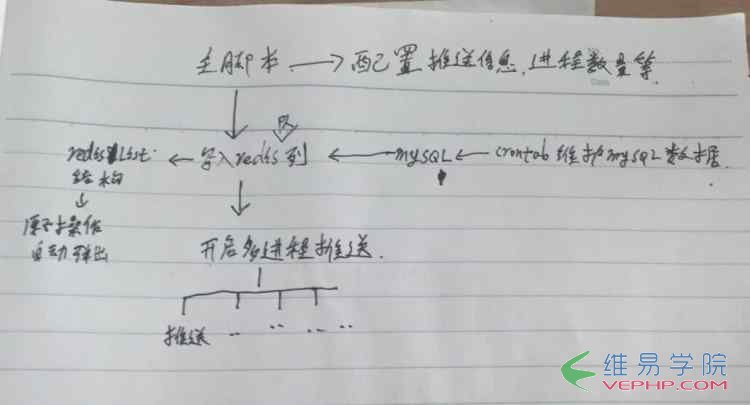 主脚本 → 配置推送信息,进程数量等
队
redis list ← 写入redis列 ← mySQL ← crontab 维护mysql 数据.
结构
↓
原子操作
自动弹出
开启多进程推送.
推送 .. .. .. ..
维易学院
VEPHP.COM